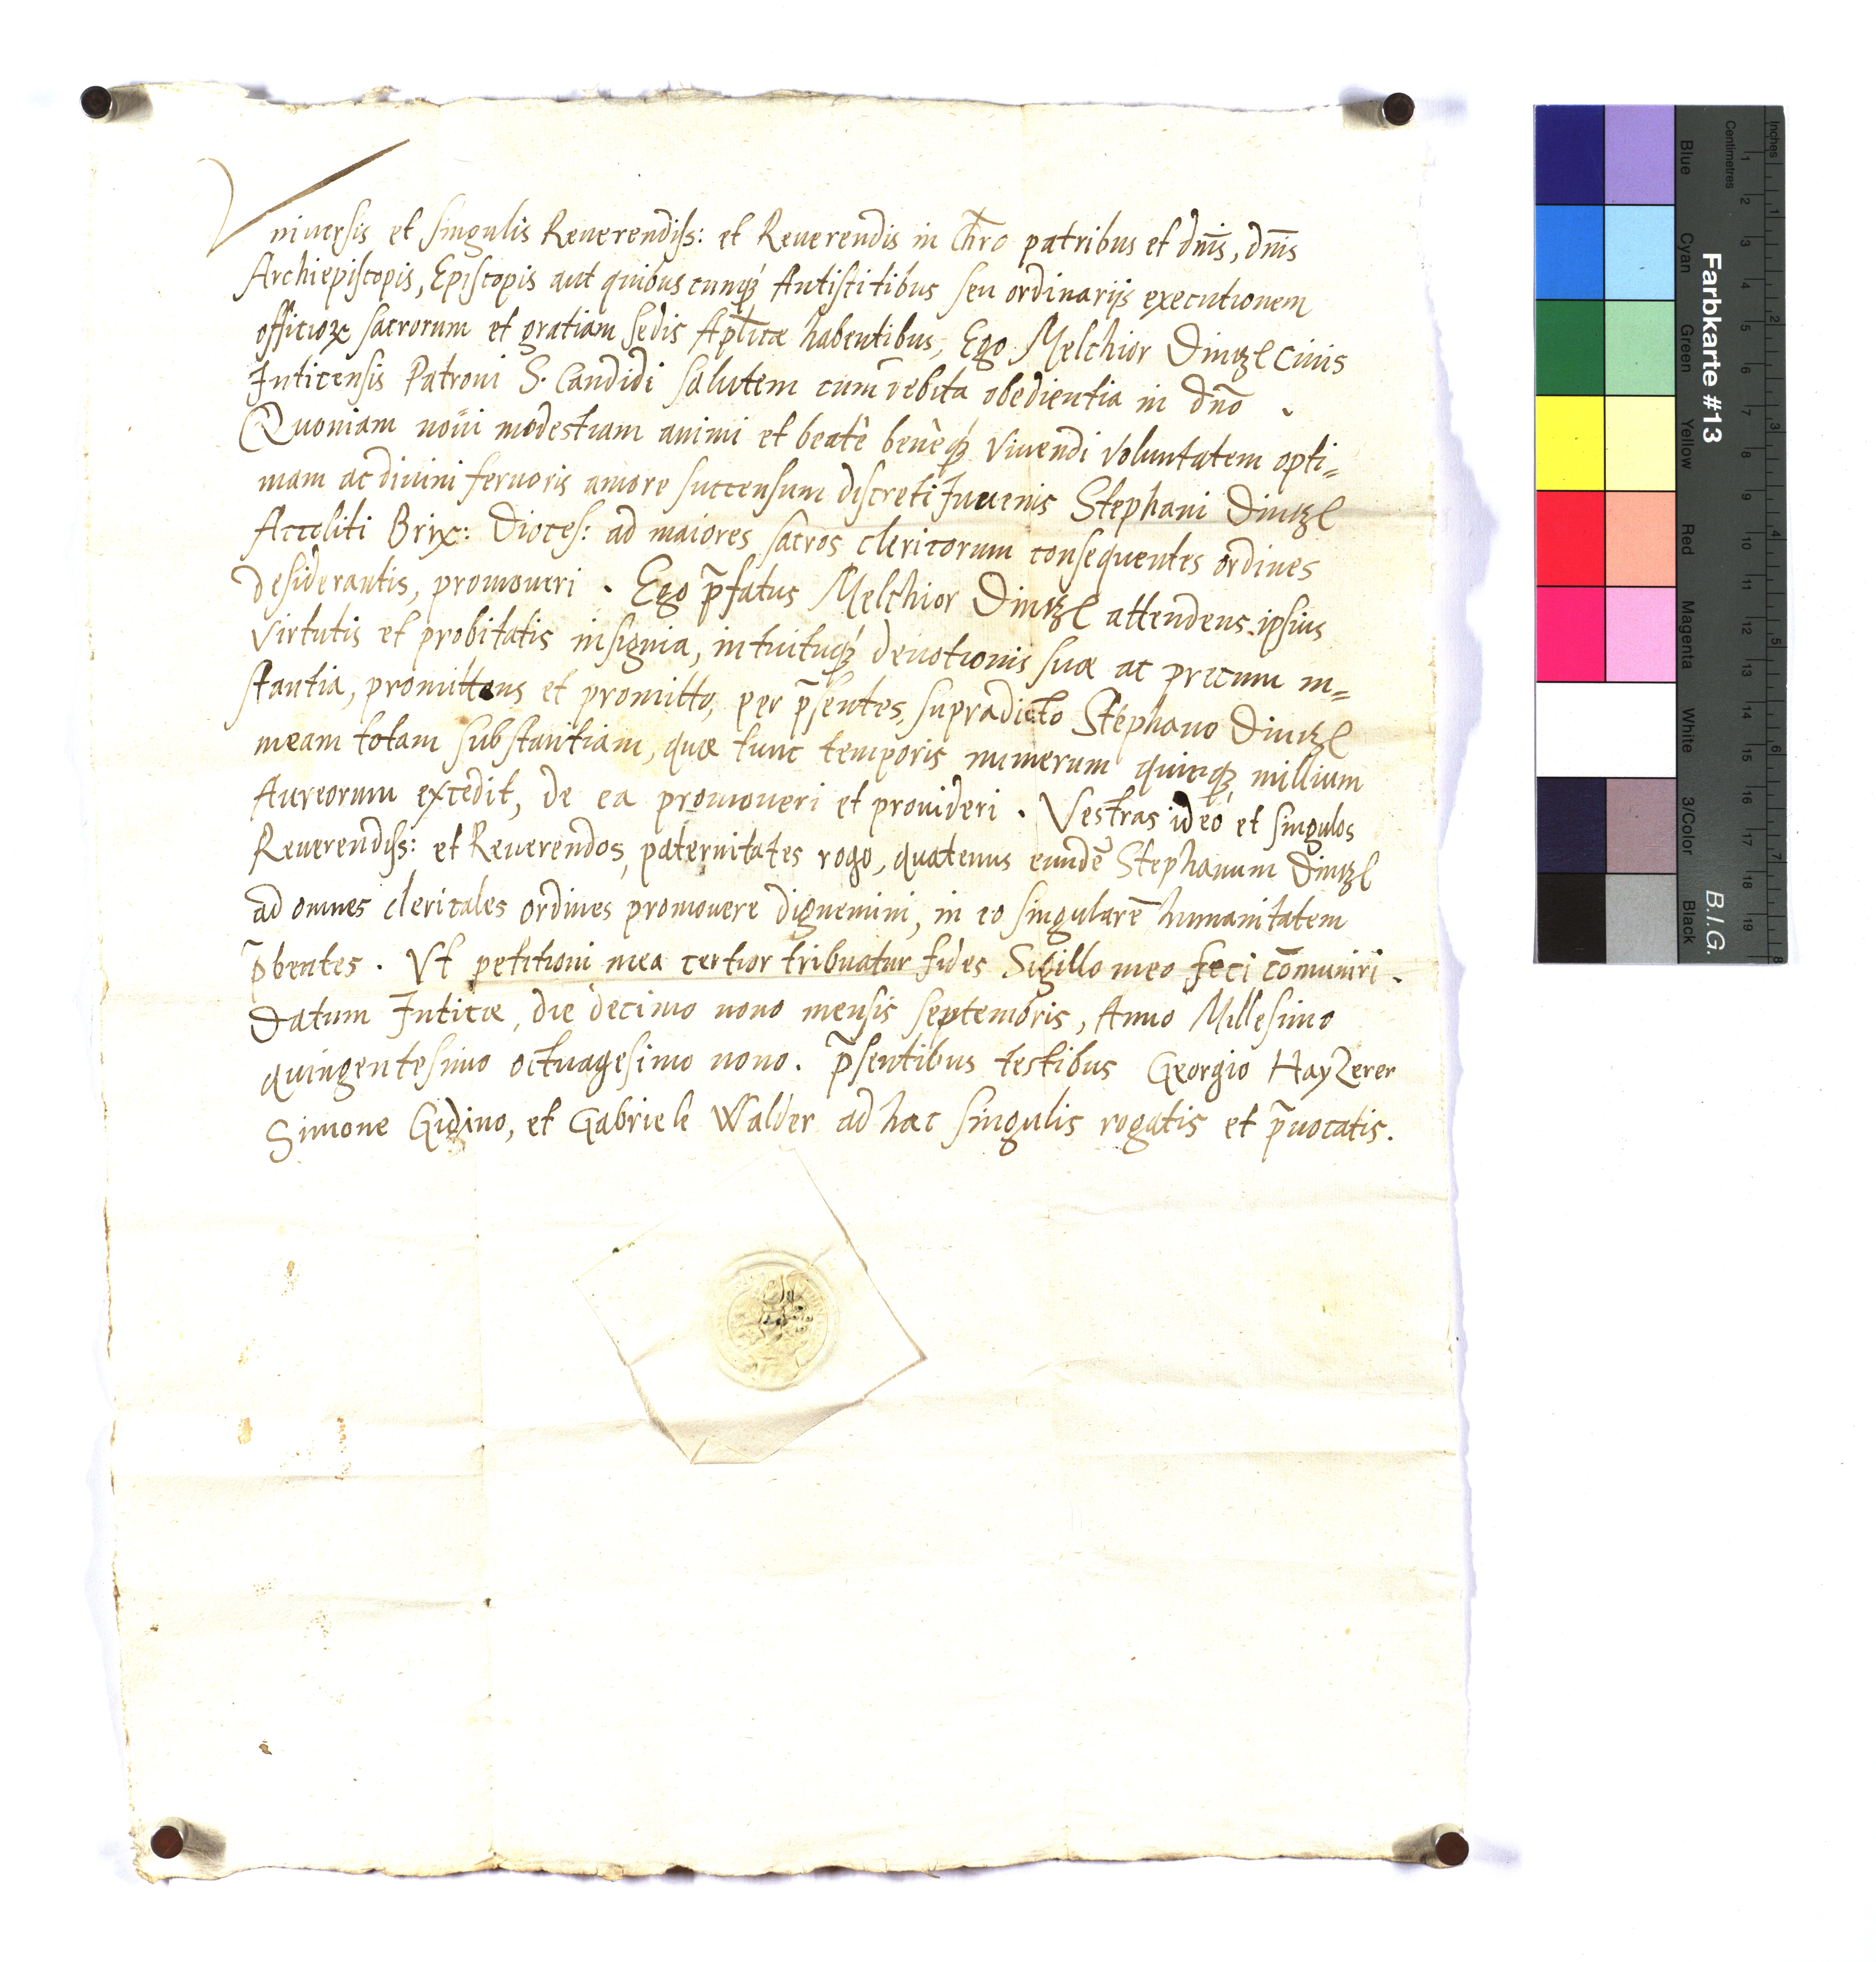 Vniuersis et singulis Reuerendiss: et Reuerendis in Chro patribus et dnis, dnis
Archiepiscopis, Episcopis aut quibuscunq́ꝫ Antistitibus seu ordinarijs executionem
officioꝝ sacrorum et gratiam sedis Aplicæ habentibus, Ego Melchior Dinzl ciuis
Inticensis Patroni S. Candidi salutem cum debita obedientia in dno.
Quoniam noui modestiam animi et beatè benèq́ꝫ viuendi voluntatem opti=
mam ac diuini feruoris amore succensum discreti Iuuenis Stephani Dinzl
Accoliti Brix: Dioces: ad maiores sacros clericorum consequentes ordines
desiderantis, promoueri. Ego p̄fatus Melchior Dinzl attendens ipsius
virtutis et probitatis insignia, intuituq́ꝫ deuotionis suæ ac precum in=
stantia, promittens et promitto, per p̄sentes, supradicto Stephano Dinzl
meam totam substantiam, quæ tunc temporis numerum quinqꝫ millium
Aureorum excedit, de ea promoueri et prouideri. Vestras ideó et singulos
Reuerendiss: et Reuerendos, paternitates rogo, quatenus eundē Stephanum Dinzl
ad omnes clericales ordines promouere dignemini, in eo singularē humanitatem
p̄beates. Vt petitioni mea certior tribuatur fides Sigillo meo feci cōmuniri.
Datum Inticæ, die decimo nono mensis septembris, Anno Millesimo
quingentesimo octuagesimo nono. p̄sentibus testibus Georgio Hayzerer
Simone Gidino, et Gabriele Walder ad hac singulis rogatis et p̄uocatis.
Farbkarte #13
B.I.G.
Blue
Cyan
Green
Yellow
Red
Magenta
White
3/Color
Black
Inches
1 2 3 4 5 6 7 8
Centimetres
1 2 3 4 5 6 7 8 9 10 11 12 13 14 15 16 17 18 19